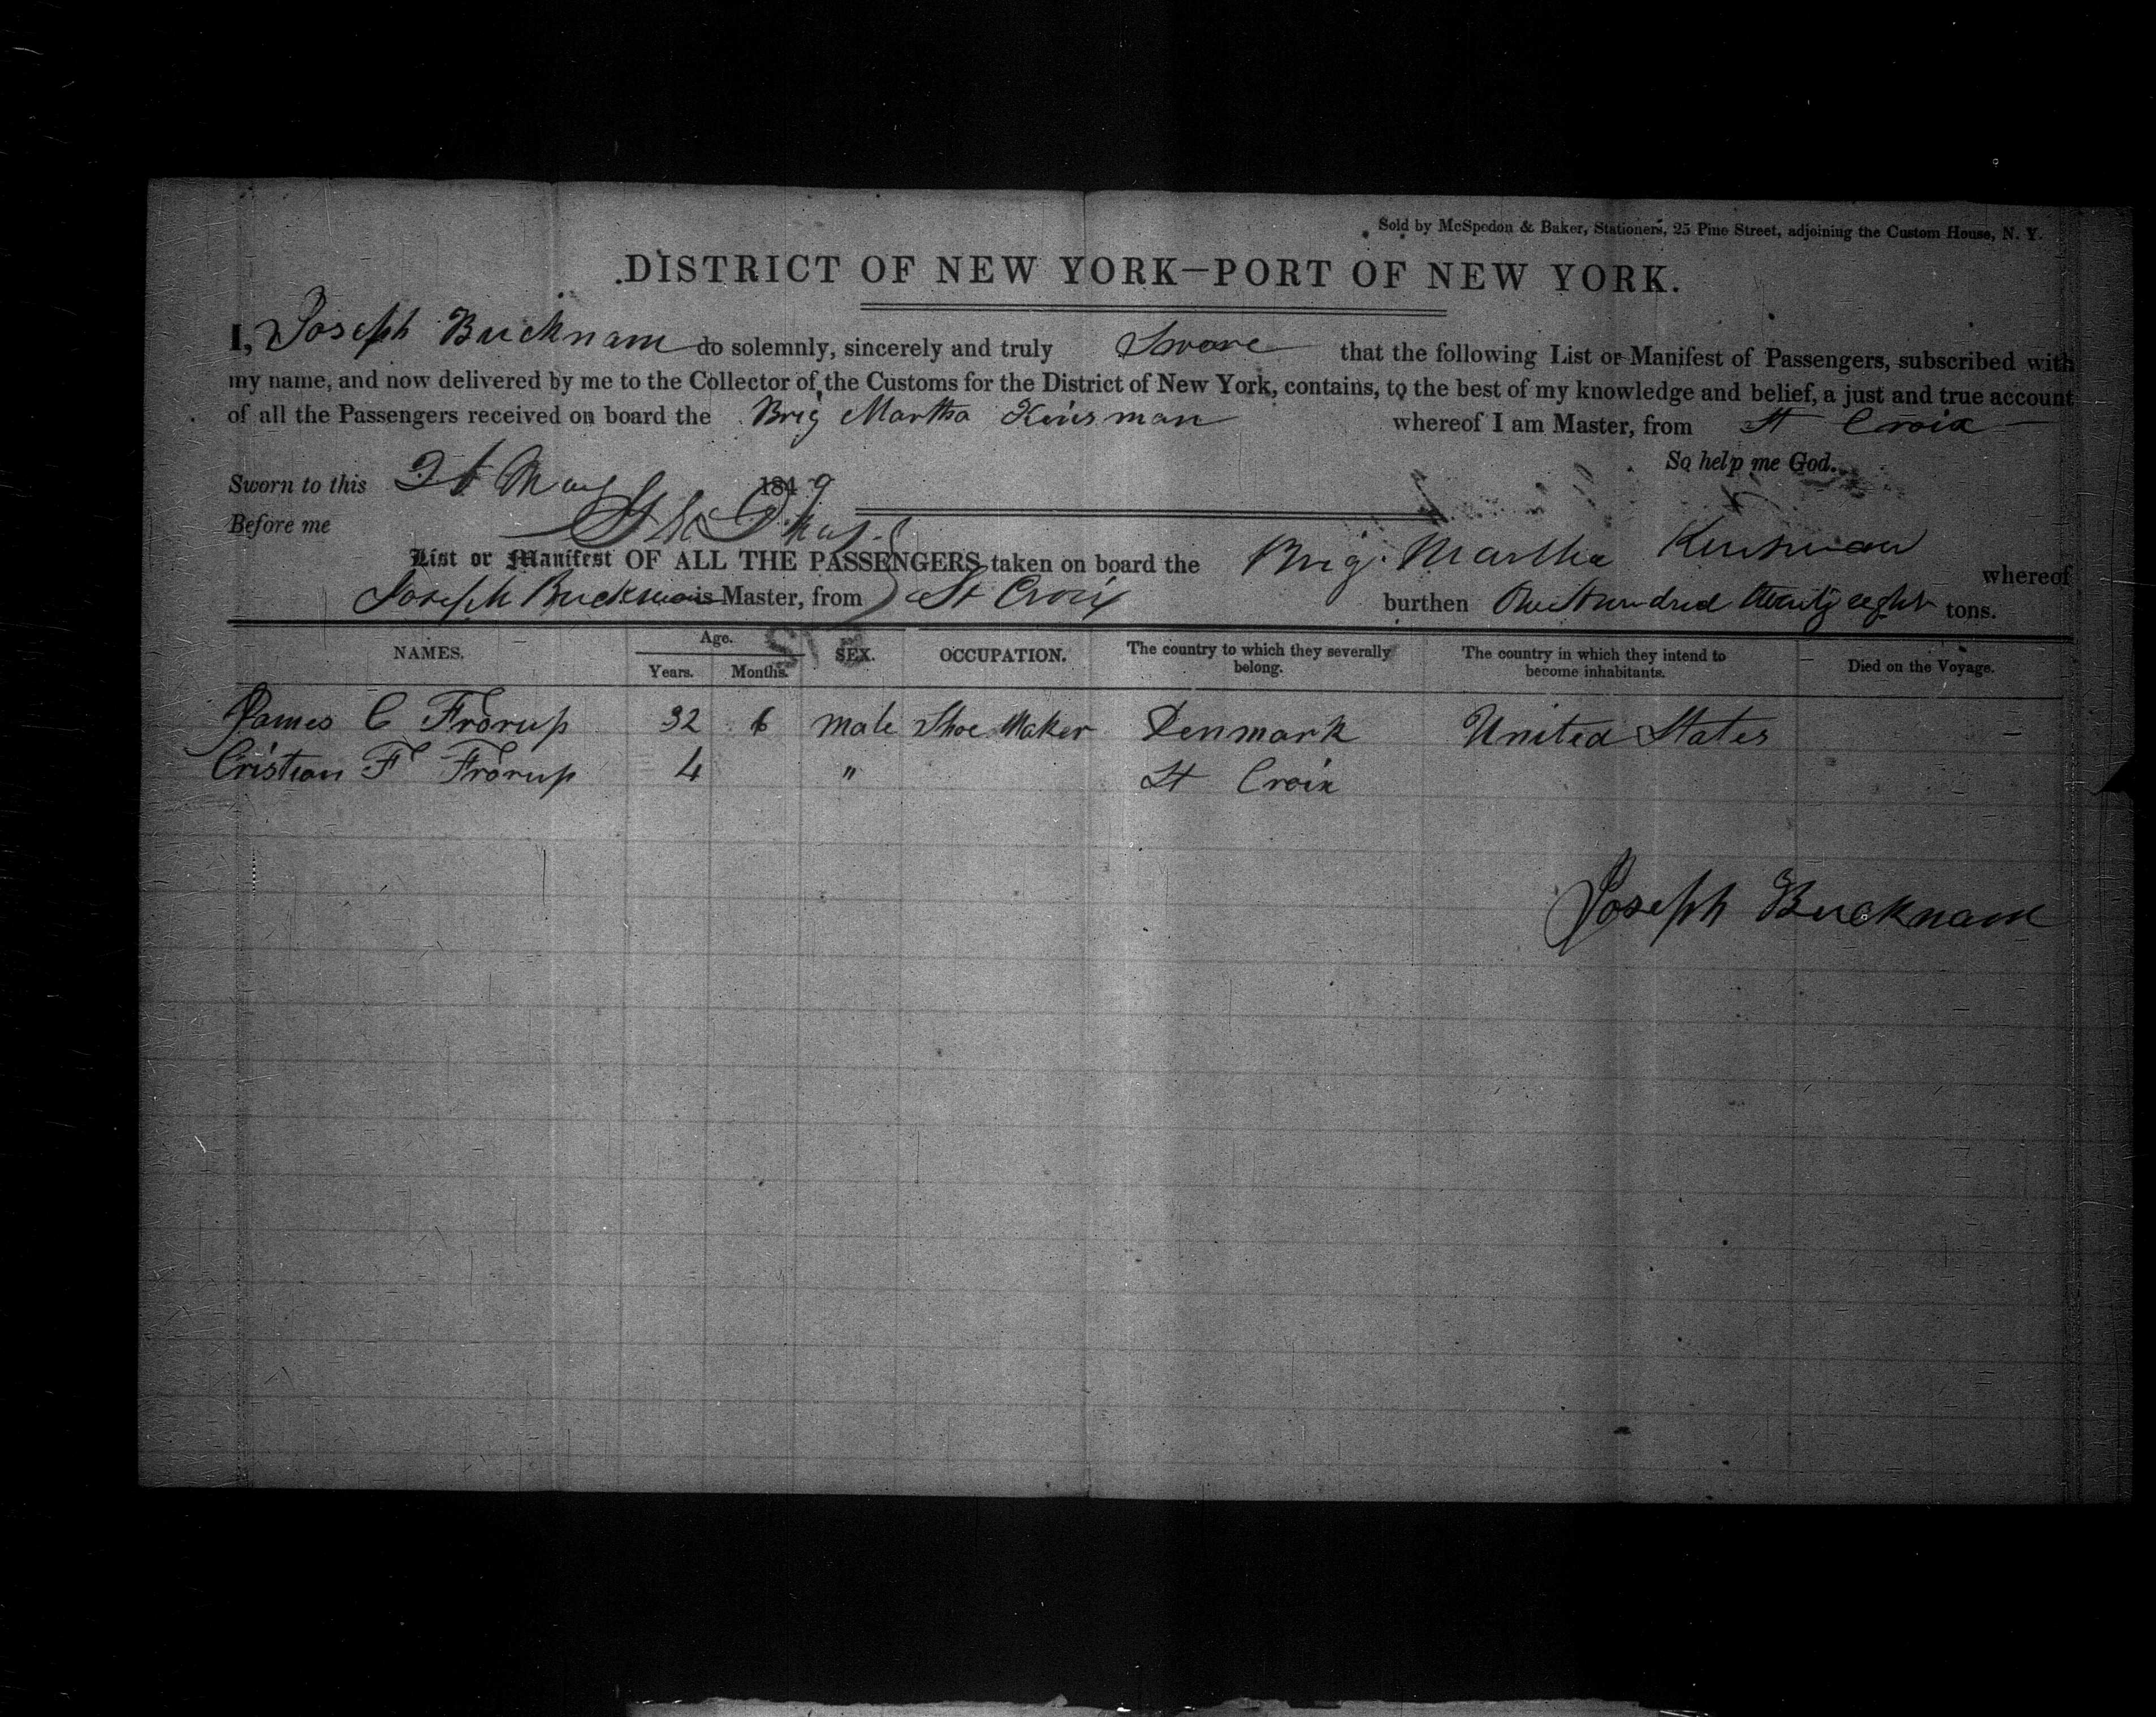 Sold by McSpedon & Baker, Stationers, 25 Pine Street, adjoining the Custom House, N. Y.
DISTRICT OF NEW YORK—PORT OF NEW YORK.
I, Joseph Bucknam do solemnly, sincerely and truly Sware that the following List or Manifest of Passengers, subscribed with
my name, and now delivered by me to the Collector of the Customs for the District of New York, contains, to the best of my knowledge and belief, a just and true account
of all the Passengers received on board the Brig Martha Kinsman whereof I am Master, from St Croix
So help me God.
Sworn to this May 1849
Before me
List or Manifest OF ALL THE PASSENGERS taken on board the Brig Martha Kinsman whereof
Joseph Bucknam is Master, from St Croix burthen One Hundred twenty eight tons.
NAMES. Age. SEX. OCCUPATION. The country to which they severally belong. The country in which they intend to become inhabitants. Died on the Voyage.
Years. Months.
James C Frörup 32 6 male Shoe Maker Denmark United States
Cristian F Frörup 4 " St Croix
Joseph Bucknam